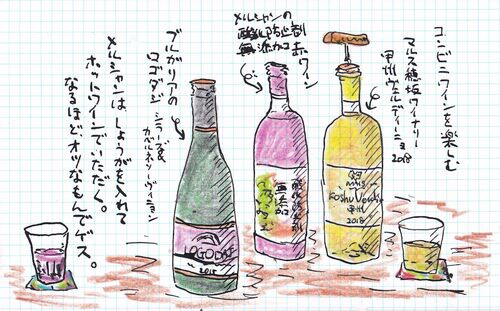 コンビニワインを楽しむ
マルス穂坂ワイナリー
甲州ヴェルディーニョ
2018
メルシャンの
酸化防止剤
無添加赤ワイン
ブルガリアの
ロゴダジ
シラーズ&
カベルネソーヴィニョン
メルシャンはしょうがを入れて
ホットワインでいただく。
なるほど、オツなもんでゲス。
LOGODAJ
2015
酸化防止剤
無添加
Koshu Verdejo
甲州
2018